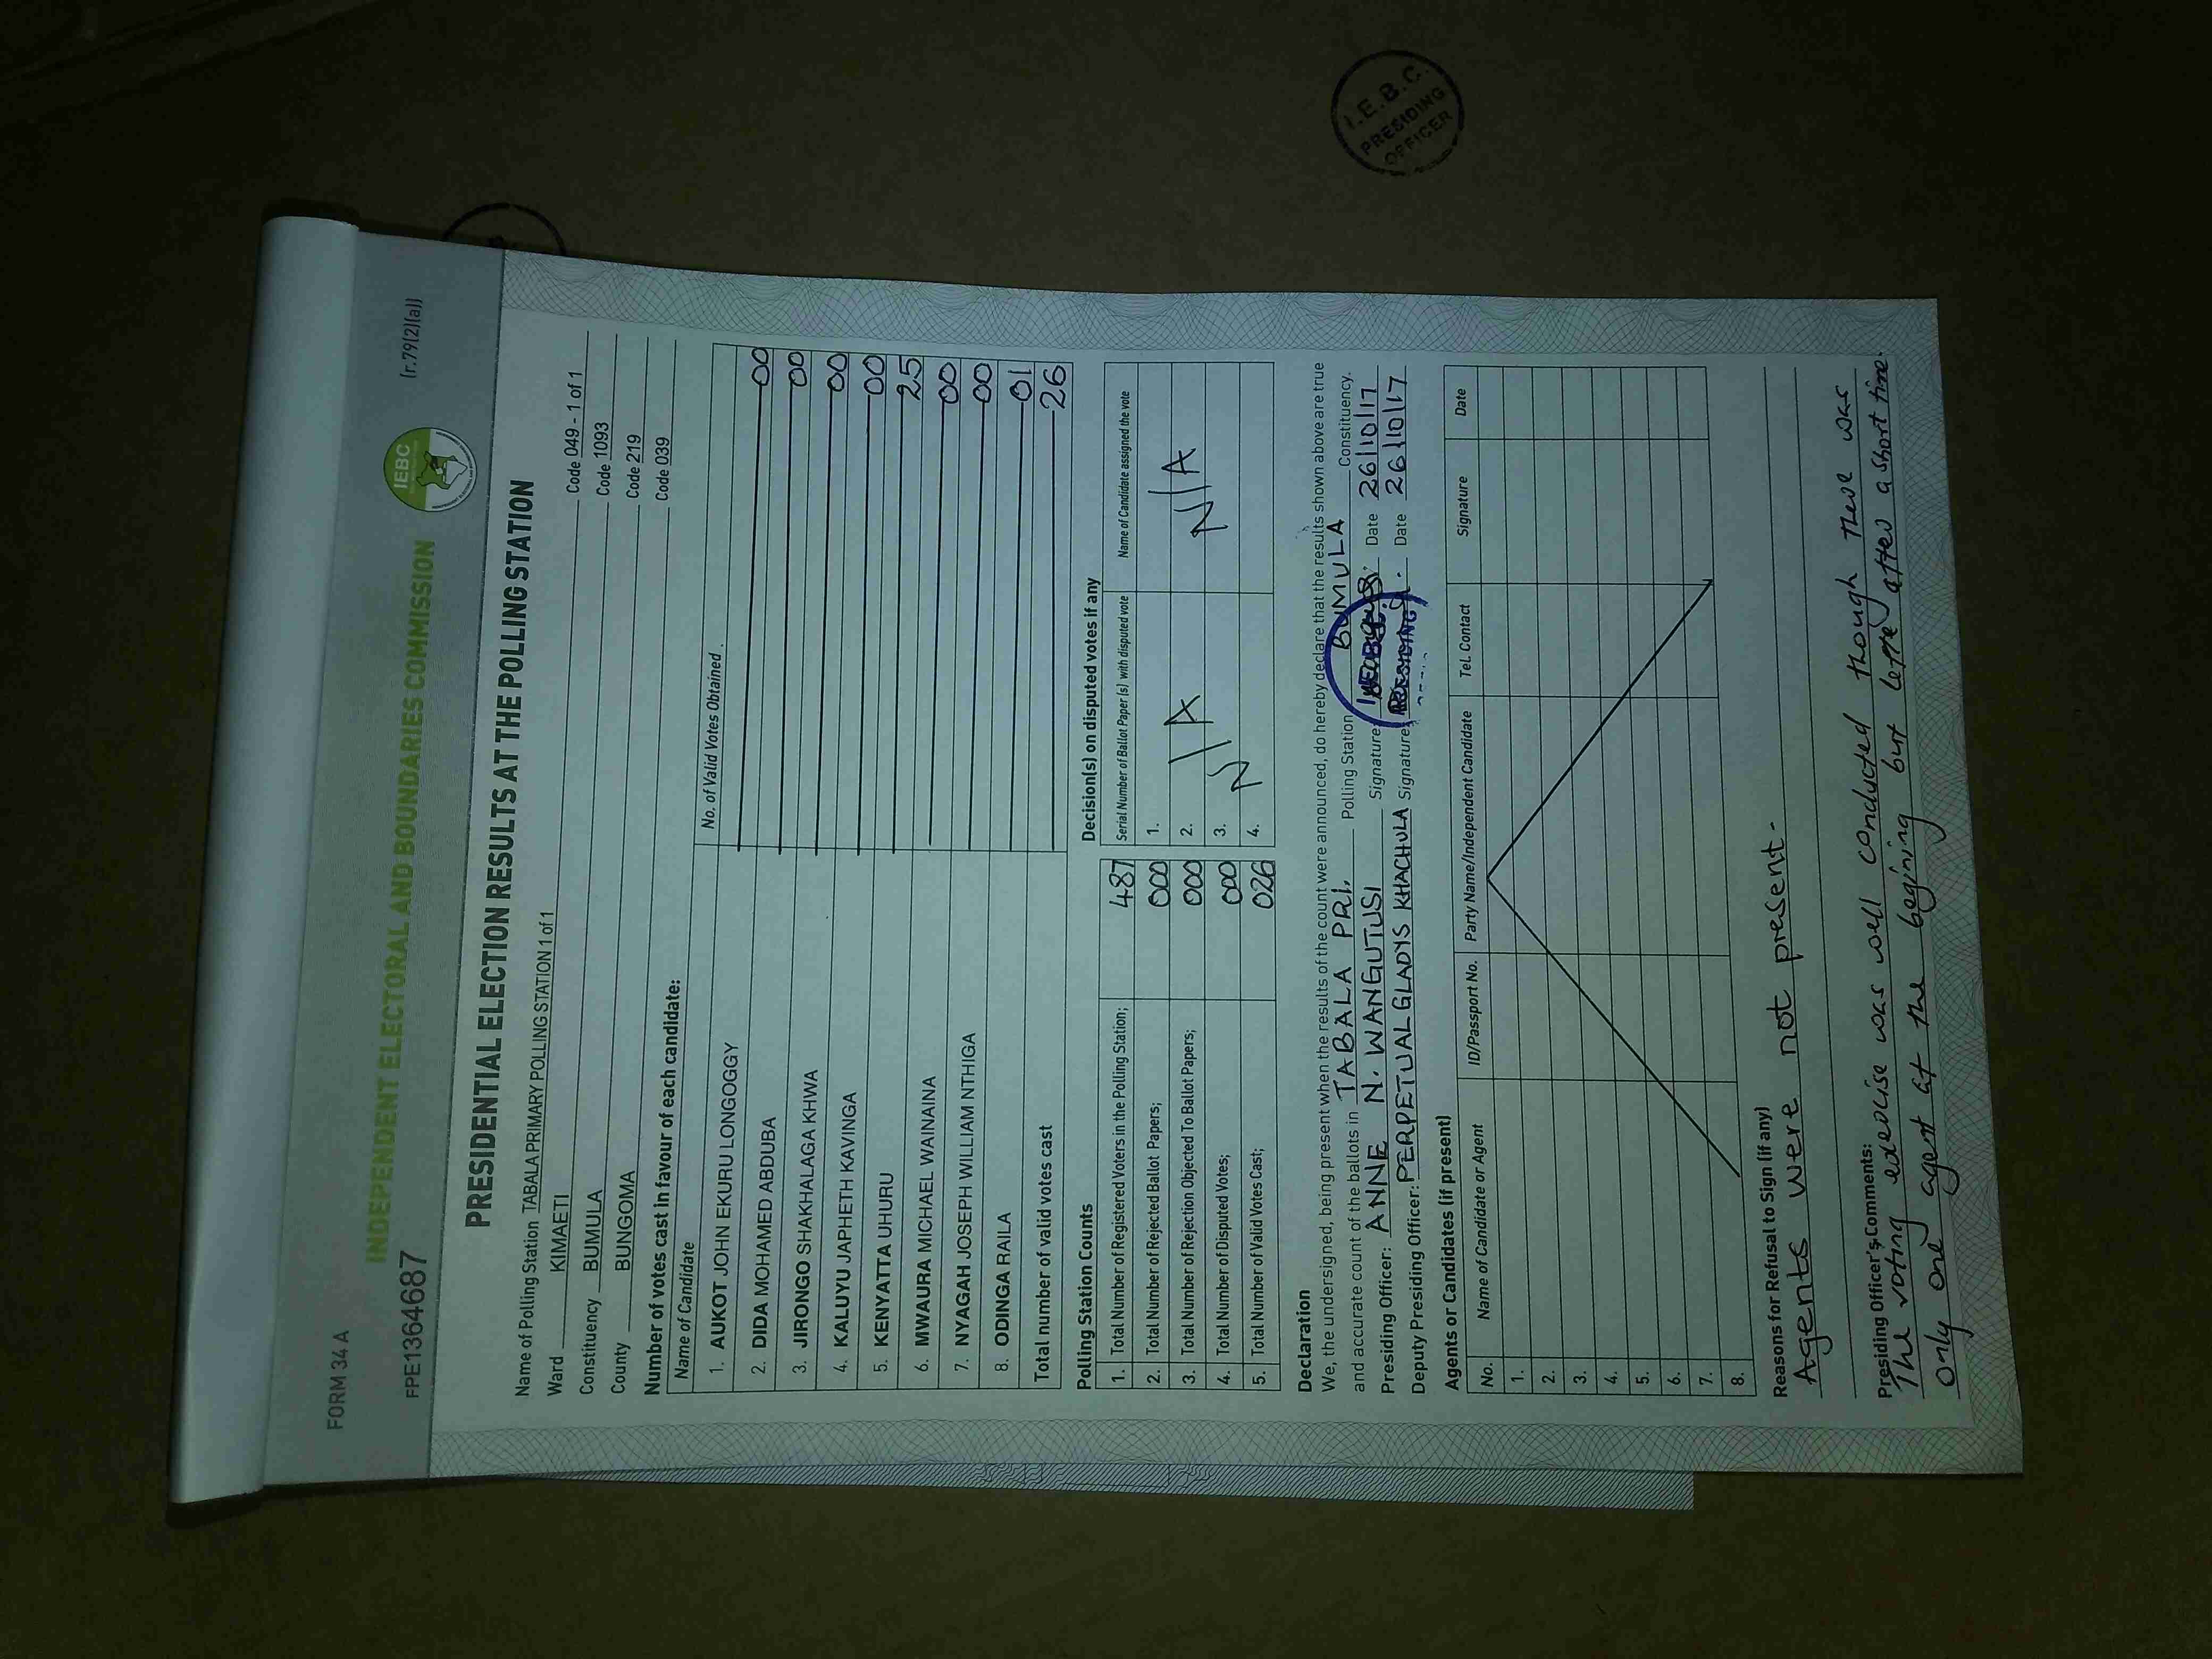 FORM 34 A
(r.79(2)(a))
FPE1364687
INDEPENDENT ELECTORAL AND BOUNDARIES COMMISSION
IEBC
PRESIDENTIAL ELECTION RESULTS AT THE POLLING STATION
Name of Polling Station TABALA PRIMARY POLLING STATION 1 of 1 Code 049 - 1 of 1
Ward KIMAETI Code 1093
Constituency BUMULA Code 219
County BUNGOMA Code 039
Number of votes cast in favour of each candidate:
Name of Candidate No. of Valid Votes Obtained
1. AUKOT JOHN EKURU LONGOGGY 00
2. DIDA MOHAMED ABDUBA 00
3. JIRONGO SHAKHALAGA KHWA 00
4. KALUYU JAPHETH KAVINGA 00
5. KENYATTA UHURU 25
6. MWAURA MICHAEL WAINAINA 00
7. NYAGAH JOSEPH WILLIAM NTHIGA 00
8. ODINGA RAILA 01
Total number of valid votes cast 26
Polling Station Counts
1. Total Number of Registered Voters in the Polling Station; 487
2. Total Number of Rejected Ballot Papers; 000
3. Total Number of Rejection Objected To Ballot Papers; 000
4. Total Number of Disputed Votes; 000
5. Total Number of Valid Votes Cast; 026
Decision(s) on disputed votes if any
Serial Number of Ballot Paper (s) with disputed vote Name of Candidate assigned the vote
1.
2. N/A N/A
3.
4.
Declaration
We, the undersigned, being present when the results of the count were announced, do hereby declare that the results shown above are true
and accurate count of the ballots in TABALA PRI. Polling Station BUMULA Constituency.
Presiding Officer: ANNE N. WANGUTUSI Signature Date 26/10/17
Deputy Presiding Officer: PERPETUAL GLADYS KHACHULA Signature Date 26/10/17
PRESIDING
Agents or Candidates (if present)
No. Name of Candidate or Agent ID/Passport No. Party Name/Independent Candidate Tel. Contact Signature Date
1.
2.
3.
4.
5.
6.
7.
8.
Reasons for Refusal to Sign (if any)
Agents were not present.
Presiding Officer's Comments:
The voting exercise was well conducted though there was
only one agent at the begining but left after a short time.
I.E.B.C.
PRESIDING
OFFICER